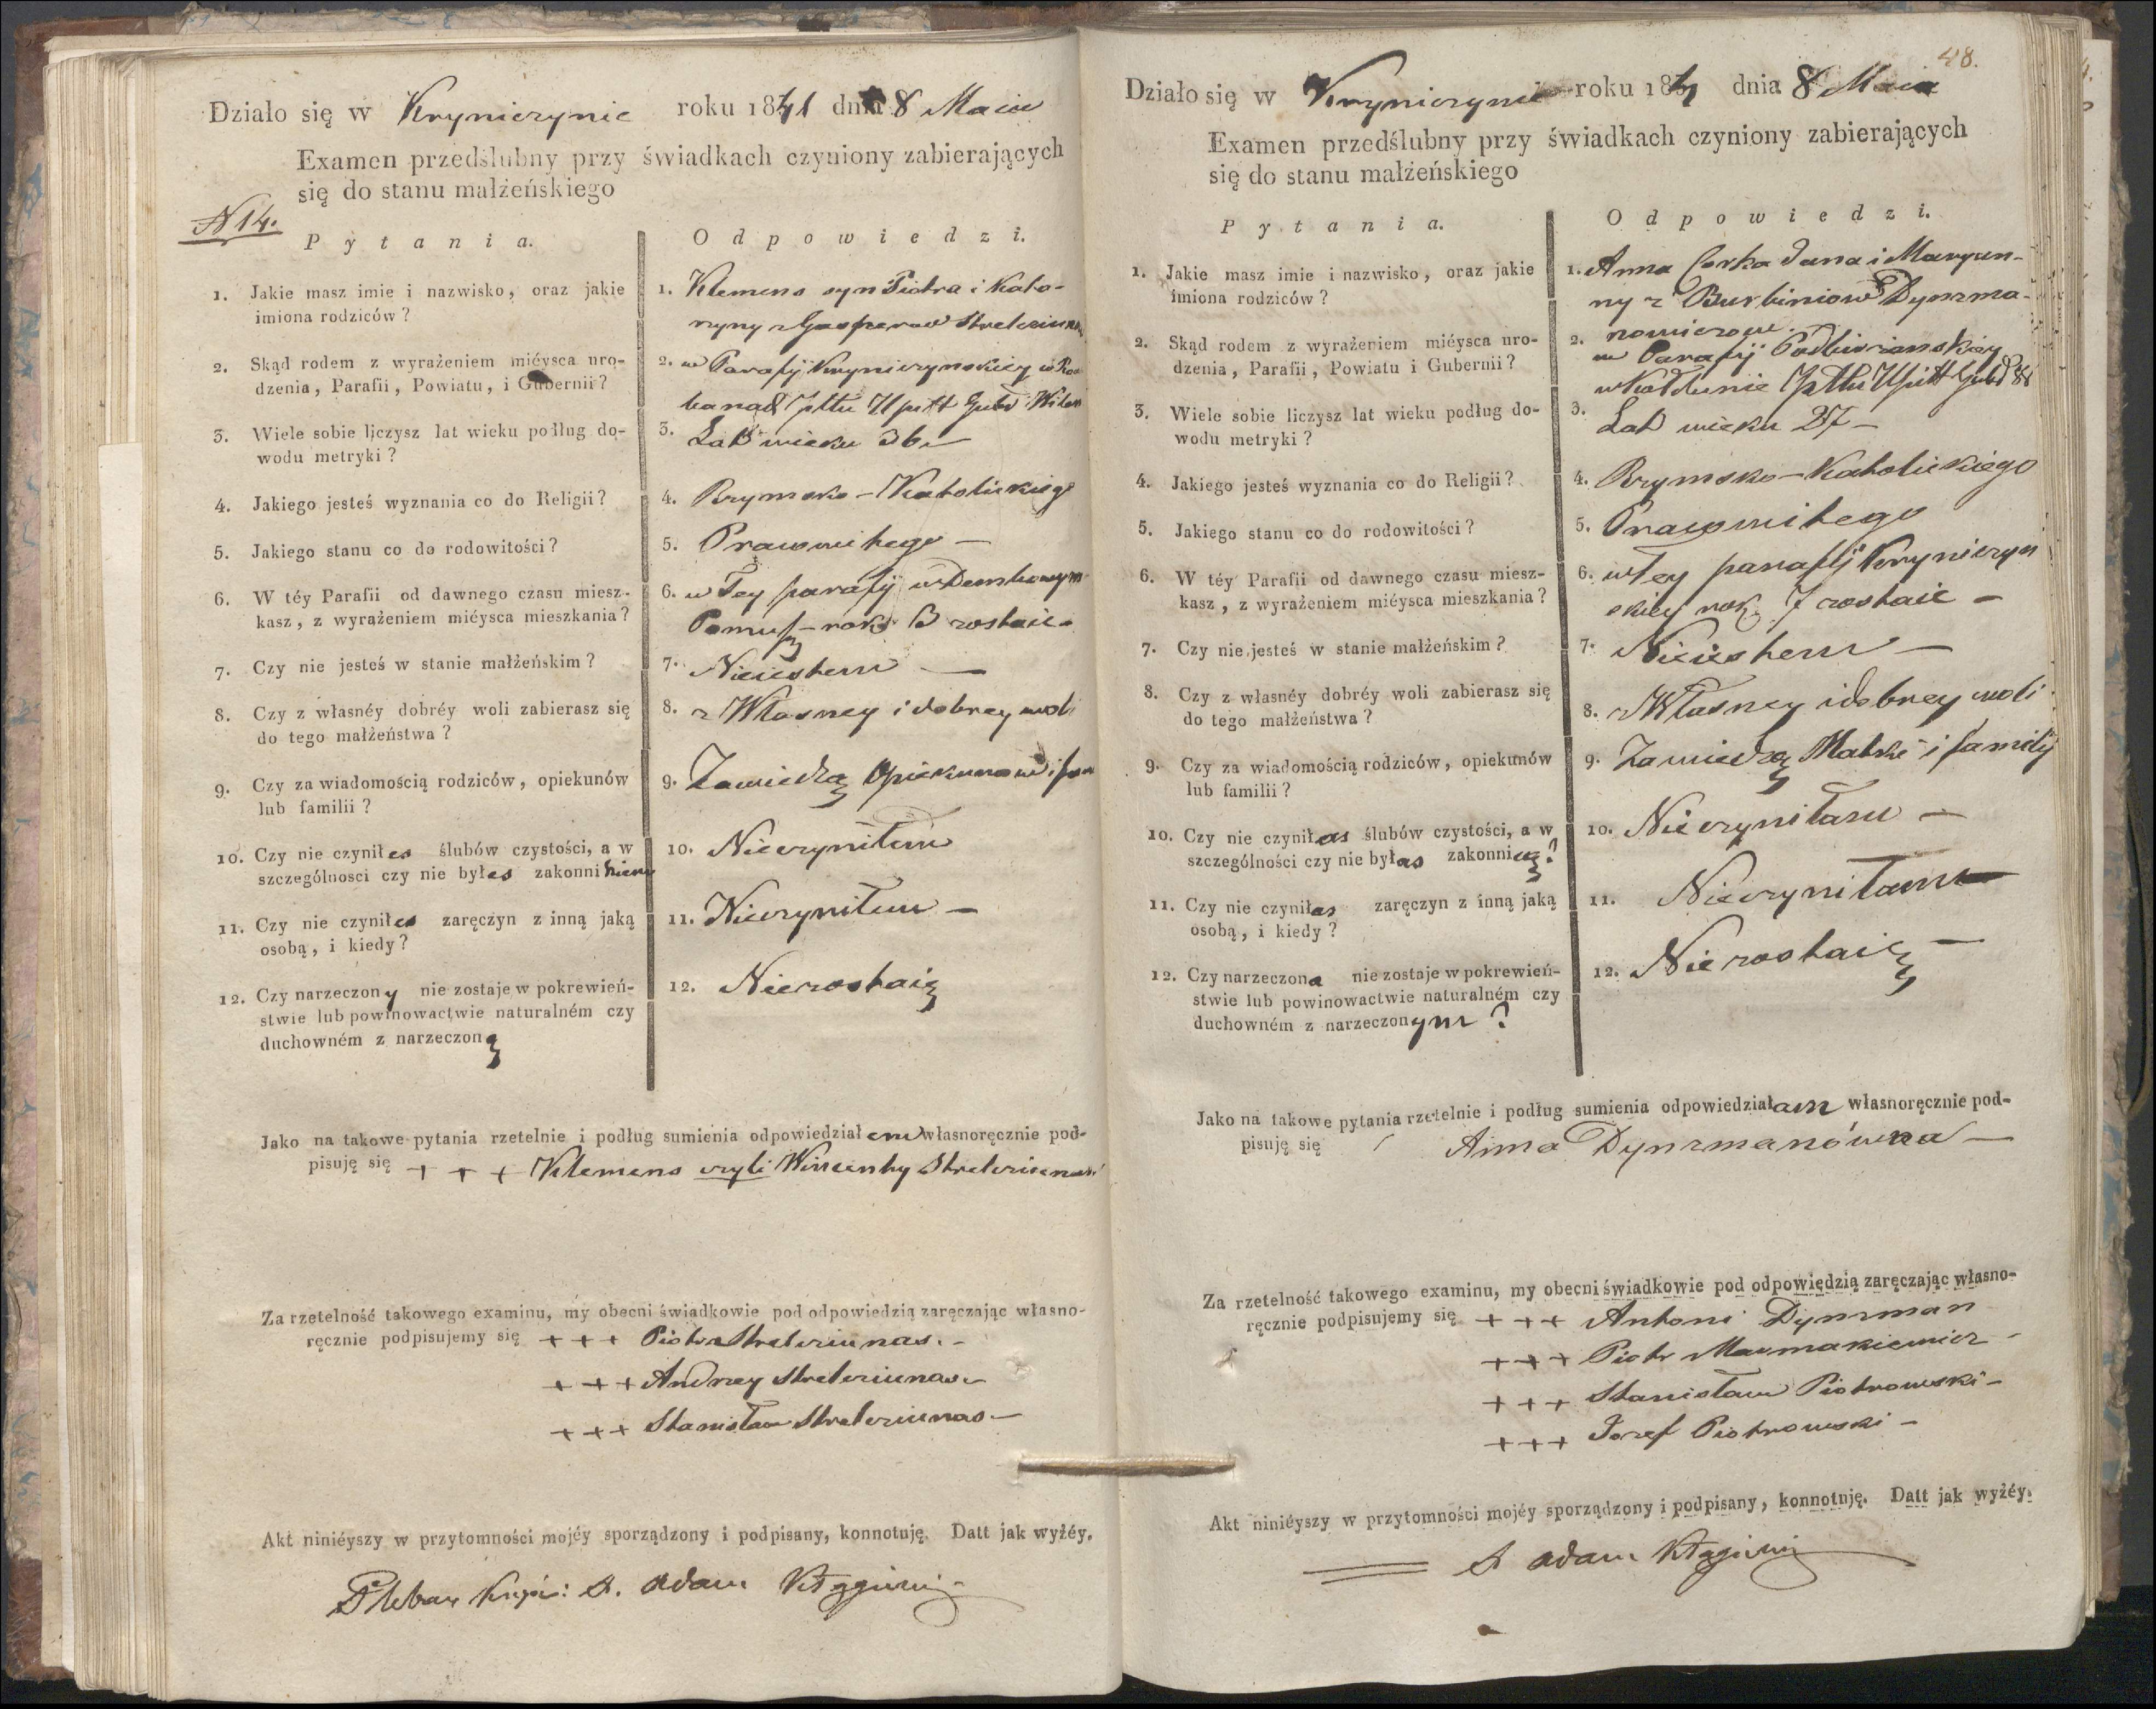 Działo się w Kryniczynie roku 1841 dnia 8 Maia
Examen przedślubny przy świadkach czyniony zabierających
się do stanu małżeńskiego
N 14.
Pytania.
Odpowiedzi.
1. Jakie masz imie i nazwisko, oraz jakie
imiona rodziców?
1. Klemens syn Piotra i Kata-
rzyny z
2. Skąd rodem z wyrażeniem miéysca uro-
dzenia, Parafii, Powiatu, i Gubernii?
2. w Parafij
3. Wiele sobie liczysz lat wieku podług do-
wodu metryki?
3. Lat wieku 36
4. Jakiego jesteś wyznania co do Religii?
4. Rzymsko-Katolickiego
5. Jakiego stanu co do rodowitości?
5. Prawowitego —
6. W téy Parafii od dawnego czasu miesz-
kasz, z wyrażeniem miéysca mieszkania?
6. w Tey parafij
7. Czy nie jesteś w stanie małżeńskim?
7. Nieiestem —
8. Czy z własnéy dobréy woli zabierasz się
do tego małżeństwa?
8. z Własney i dobrey woli
9. Czy za wiadomością rodziców, opiekunów
lub familii?
9. Zawiedzą Opiekunow i
10. Czy nie czyniłes ślubów czystości, a w
szczególnosci czy nie byłes zakonnikiem
10. Nieczyniłem
11. Czy nie czyniłes zaręczyn z inną jaką
osobą, i kiedy?
11. Nieczyniłem —
12. Czy narzeczony nie zostaje w pokrewień-
stwie lub powinowactwie naturalném czy
duchowném z narzeczoną
12. Niezostaię
Jako na takowe pytania rzetelnie i podług sumienia odpowiedziałem własnoręcznie pod-
pisuję się + + + Klemens czyli Wincenty
Za rzetelność takowego examinu, my obecni świadkowie pod odpowiedzią zaręczając własno-
ręcznie podpisujemy się + + + Piotr Streleziunas. -
+ + + Andrzey Streleziunas -
+ + + Stanisław Streleziunas —
Akt niniéyszy w przytomności mojéy sporządzony i podpisany, konnotuję. Datt jak wyżéy.
Pleban X. Adam
48.
Działo się w Kryniczynie roku 1841 dnia 8 Maia
Examen przedślubny przy świadkach czyniony zabierających
się do stanu małżeńskiego
Pytania.
Odpowiedzi.
1. Jakie masz imie i nazwisko, oraz jakie
imiona rodziców?
1. Anna Corka Jana i Maryan-
ny z
2. Skąd rodem z wyrażeniem miéysca uro-
dzenia, Parafii, Powiatu i Gubernii?
2. w Parafij
3. Wiele sobie liczysz lat wieku podług do-
wodu metryki?
3. Lat wieku 27 —
4. Jakiego jesteś wyznania co do Religii?
4. Rzymsko-Katolickiego
5. Jakiego stanu co do rodowitości?
5. Prawowitego
6. W téy Parafii od dawnego czasu miesz-
kasz, z wyrażeniem miéysca mieszkania?
6. w Tey parafij Kryniczyn
skiey rok 7 zostaie —
7. Czy nie jesteś w stanie małżeńskim?
7. Nieiestem —
8. Czy z własnéy dobréy woli zabierasz się
do tego małżeństwa?
8. z Własney i dobrey woli
9. Czy za wiadomością rodziców, opiekunów
lub familii?
9. Zawiedzą Matki i familij
10. Czy nie czyniłas ślubów czystości, a w
szczególności czy nie byłas zakonnicą?
10. Nieczyniłam —
11. Czy nie czyniłas zaręczyn z inną jaką
osobą, i kiedy?
11. Nieczyniłam —
12. Czy narzeczona nie zostaje w pokrewień-
stwie lub powinowactwie naturalném czy
duchowném z narzeczonym?
12. Niezostaię —
Jako na takowe pytania rzetelnie i podług sumienia odpowiedziałam własnoręcznie pod-
pisuję się Anna Dynzmanówna —
Za rzetelność takowego examinu, my obecni świadkowie pod odpowiędzią zaręczając własno-
ręcznie podpisujemy się + + + Antoni Dynzman
+ + + Piotr Marmakiewicz -
+ + + Stanisław Piotrowski -
+ + + Jozef Piotrowski -
Akt niniéyszy w przytomności mojéy sporządzony i podpisany, konnotuję. Datt jak wyżéy.
X Adam